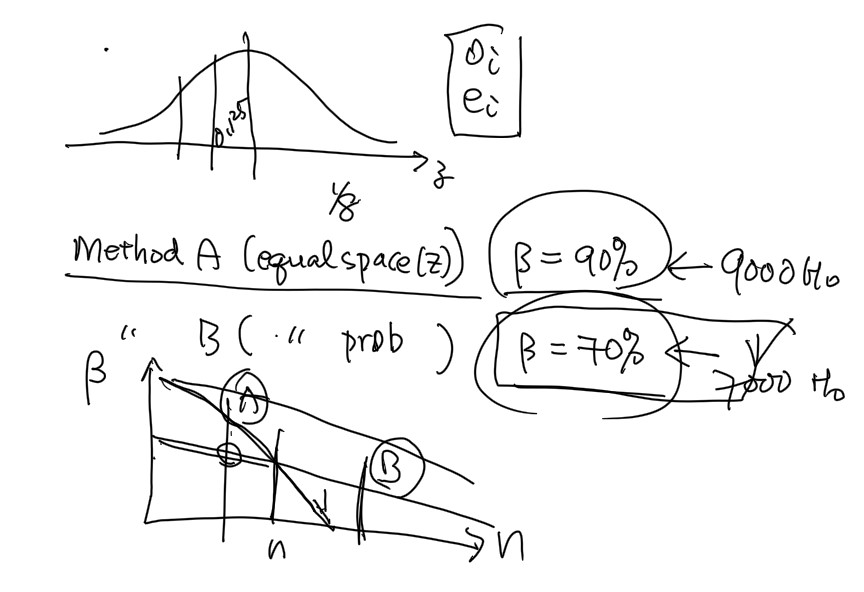 0.125
z
oi
ei
1/8
Method A (equal space(z)) β = 90% ← 9000 Ho
" B ( " prob ) β = 70% ← 7000 Ho
β
A
B
n
n